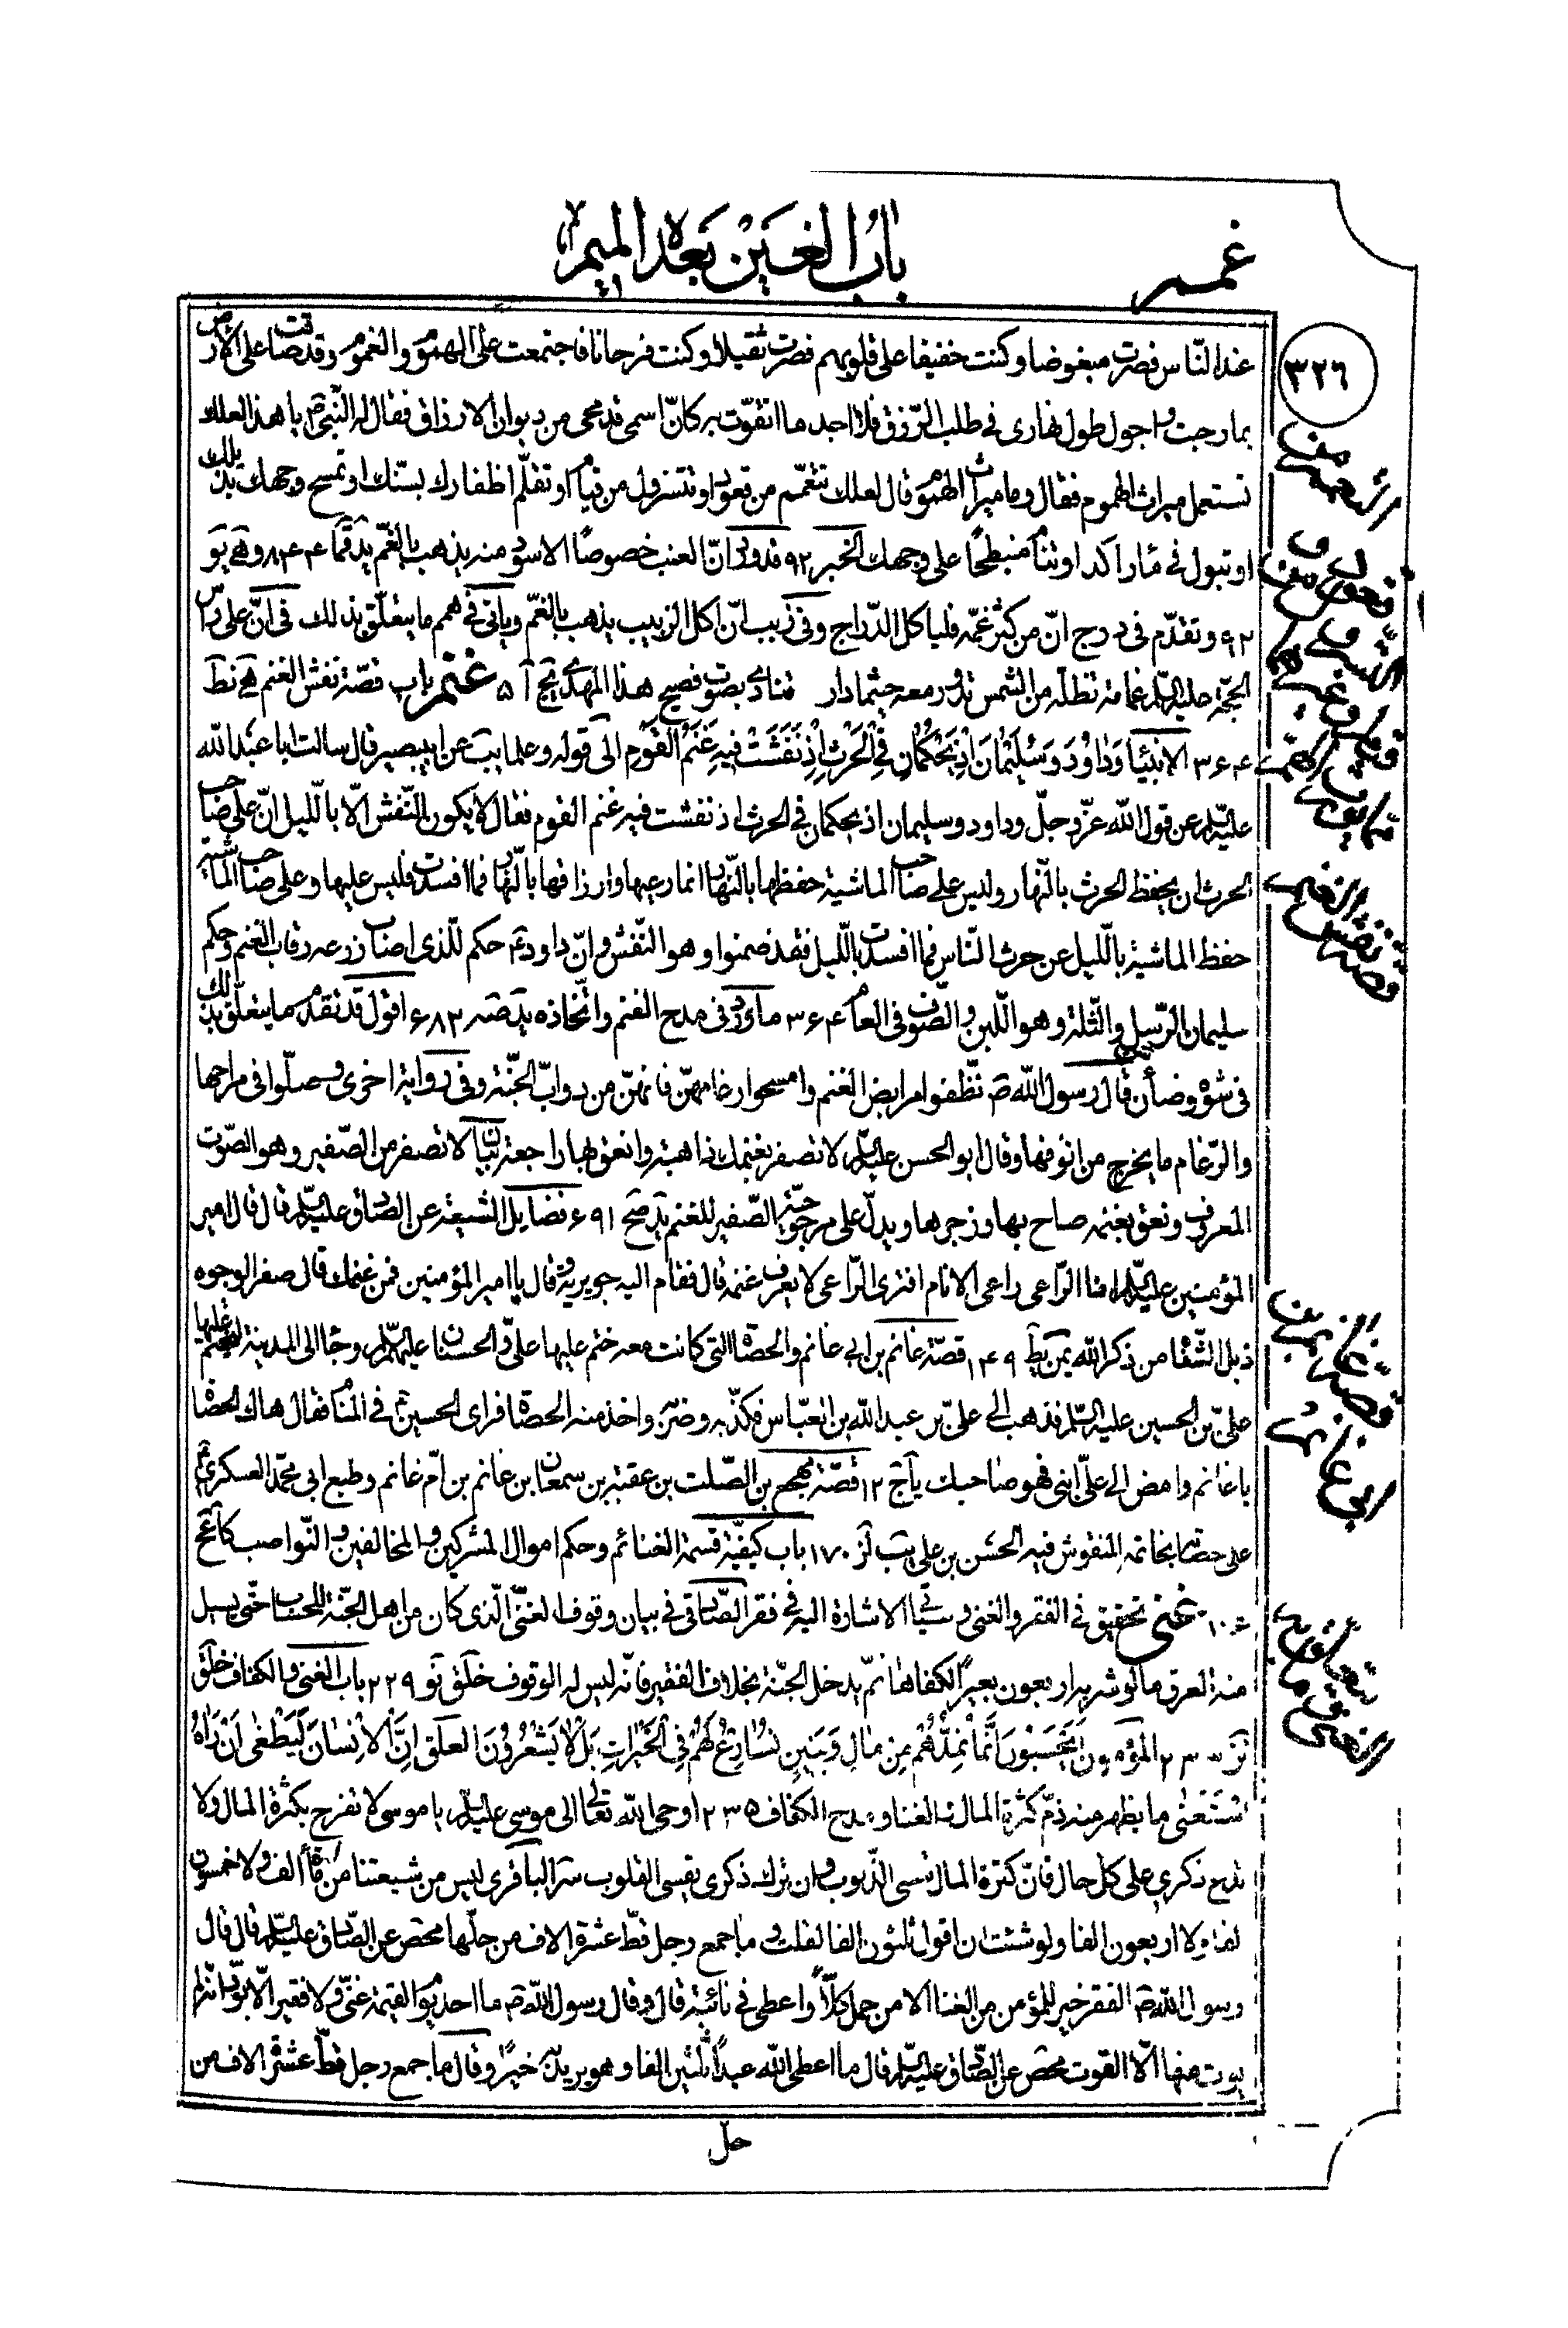 غمم
باب الغين بعده الميم
٣٢٦
عند الناس فصرت مبغوضا وكنت خفيفا على قلوبهم فصرت ثقيلا وكنت فرحانا فاجتمعت علىّ الهموم والغموم وقد ضاقت على الارض
بما رحبت واجول طول نهارى فى طلب الرّزق فلا اجد ما اتقوّت به كانّ اسمى قد محى من ديوان الارزاق فقال له النّبىّ ص يا هذا لعلك
تستعمل ميراث الهموم فقال وما ميراث الهموم قال لعلك تتعمّم من قعود او تتسرول من قيام او تقلّم اظفارك بسنّك او تمسح وجهك بذيلك
او تبول فى ماء راكد او تنام منبطحًا على وجهك الخبر ٩٢ قد ورد انّ العنب خصوصًا الاسود منه يذهب بالغمّ يد قما ٨٤٤ وهج يو
٩٢ وتقدّم فى درج انّ من كثر غمّه فلياكل الدّراج وفى زبب انّ اكل الزبيب يذهب بالغمّ وياتى فى همم ما يتعلّق بذلك فى انّ على راس
الحجّة عليه السلم غمامة تظلّه من الشمس تدور معه حيثما دار تنادى بصوت فصيح هذا المهدى يج آ ٥ غنم باب قصّة نفش الغنم هج نط
٣٦٤ الانبياء وَدَاوُدَ وَسُلَيْمَانَ اِذْ يَحْكُمَانِ فِى الْحَرْثِ اِذْ نَفَشَتْ فِيهِ غَنَمُ الْقَوْمِ الى قوله وعلما يب عن ابى بصير قال سالت ابا عبد الله
عليه السلم عن قول الله عزّ وجلّ وداود وسليمان اذ يحكمان فى الحرث اذ نفشت فيه غنم القوم فقال لا يكون النّفش الّا باللّيل انّ على صاحب
الحرث ان يحفظ الحرث بالنّهار وليس على صاحب الماشية حفظها بالنّهار انما رعيها وارزاقها بالنّهار فما افسدت فليس عليها وعلى صاحب الماشية
حفظ الماشية باللّيل عن حرث النّاس فما افسدت باللّيل فقد ضمنوا وهو النّفش وانّ داود ع حكم للّذى اصاب زرعه رقاب الغنم وحكم
سليمان الرّسل والثّلة وهو اللّبن والصّوف فى العام ٣٦٤ ما ورد فى مدح الغنم واتّخاذه يد صه ٦٨٣ اقول قد تقدم ما يتعلّق بذلك
فى شوه وضأن قال رسول الله ص نظّفوا مرابض الغنم وامسحوا رغامهنّ فانهنّ من دوابّ الجنّة وفى رواية اخرى وصلّوا فى مراحها
والرّغام ما يخرج من انوفها وقال ابو الحسن عليه السلم لا تصفر بغنمك ذاهبة وانعق بها راجعة بيان لا تصفر من الصّفير وهو الصّوت
المعروف ونعق بغنمه صاح بها وزجرها ويدلّ على مرجوحيّة الصّفير للغنم يد صح ٦٩١ فضايل الشيعة عن الصادق عليه السلم قال قال امير
المؤمنين عليه السلم انا الرّاعى راعى الانام افترى الرّاعى لا يعرف غنمه قال فقام اليه جويرية وقال يا امير المؤمنين فمن غنمك قال صفر الوجوه
ذبل الشّفاه من ذكر الله يمن يط ١٤٩ قصّة غانم بن ابى غانم والحصاة التى كانت معه ختم عليها علىّ والحسنان عليهم السلم وجاء الى المدينة ليختم عليها
علىّ بن الحسين عليه السلم فذهب الى علىّ بن عبد الله بن العبّاس فكذّبه وضربه واخذ منه الحصاة فراى الحسين ع فى المنام فقال هاك الحصاة
يا غانم وامض الى علىّ ابنى فهو صاحبك يا ج ١٢ قصّة مهجع بن الصّلت بن عقبة بن سمعان بن غانم بن امّ غانم وطبع ابى محمّد العسكرى ع
على حصاته بخاتمه المنقوش فيه الحسن بن على يب لز ١٧٠ باب كيفيّة قسمة الغنائم وحكم اموال المشركين والمخالفين والنّواصب كا عج
١٠ غنى تحقيق فى الفقر والغنى وسياتى الاشارة اليه فى فقر الصادقى فى بيان وقوف الغنىّ الّذى كان من اهل الجنّة للحساب حتّى يسيل
منه العرق ما لو شربه اربعون بعيرًا لكفاها ثم يدخل الجنّة بخلاف الفقير فانّه ليس له الوقوف خلق نو ٢٢٩ باب الغنى والكفاف خلق
نز ٢٣٠ المؤمنون اَيَحْسَبُونَ اَنَّمَا نُمِدُّهُمْ بِهِ مِن مَالٍ وَبَنِينَ نُسَارِعُ لَهُمْ فِى الْخَيْرَاتِ بَلْ لَا يَشْعُرُونَ العلق اِنَّ الْاِنْسَانَ لَيَطْغَى اَنْ رَاهُ
اسْتَغْنَى ما يظهر منه ذمّ كثرة المال والغنا ومدح الكفاف ٢٣٥ اوحى الله تعالى الى موسى عليه السلم يا موسى لا تفرح بكثرة المال ولا
تدع ذكرى على كل حال فانّ كثرة المال تنسى الذّنوب وان ترك ذكرى يقسى القلوب سر الباقرى ليس من شيعتنا من له مأة الف ولا خمسون
الفا ولا اربعون الفا ولو شئت ان اقول ثلثون الفا لقلت وما جمع رجل قطّ عشرة الاف من حلّها محص عن الصّادق عليه السلم قال قال
رسول الله ص الفقر خير للمؤمن من الغنا الا من حمل كلّاً واعطى فى نائبة قال وقال رسول الله ص ما احد يوم القيمة غنىّ ولا فقير الّا يودّ انّه لم
يوت منها الّا القوت محص عن الصّادق عليه السلم قال ما اعطى الله عبدًا ثلثين الفا وهو يريد به خيرًا وقال ما جمع رجل قطّ عشرة الاف من
حل
قصة نفش الغنم
قصّة غانم بن
ابى غانم